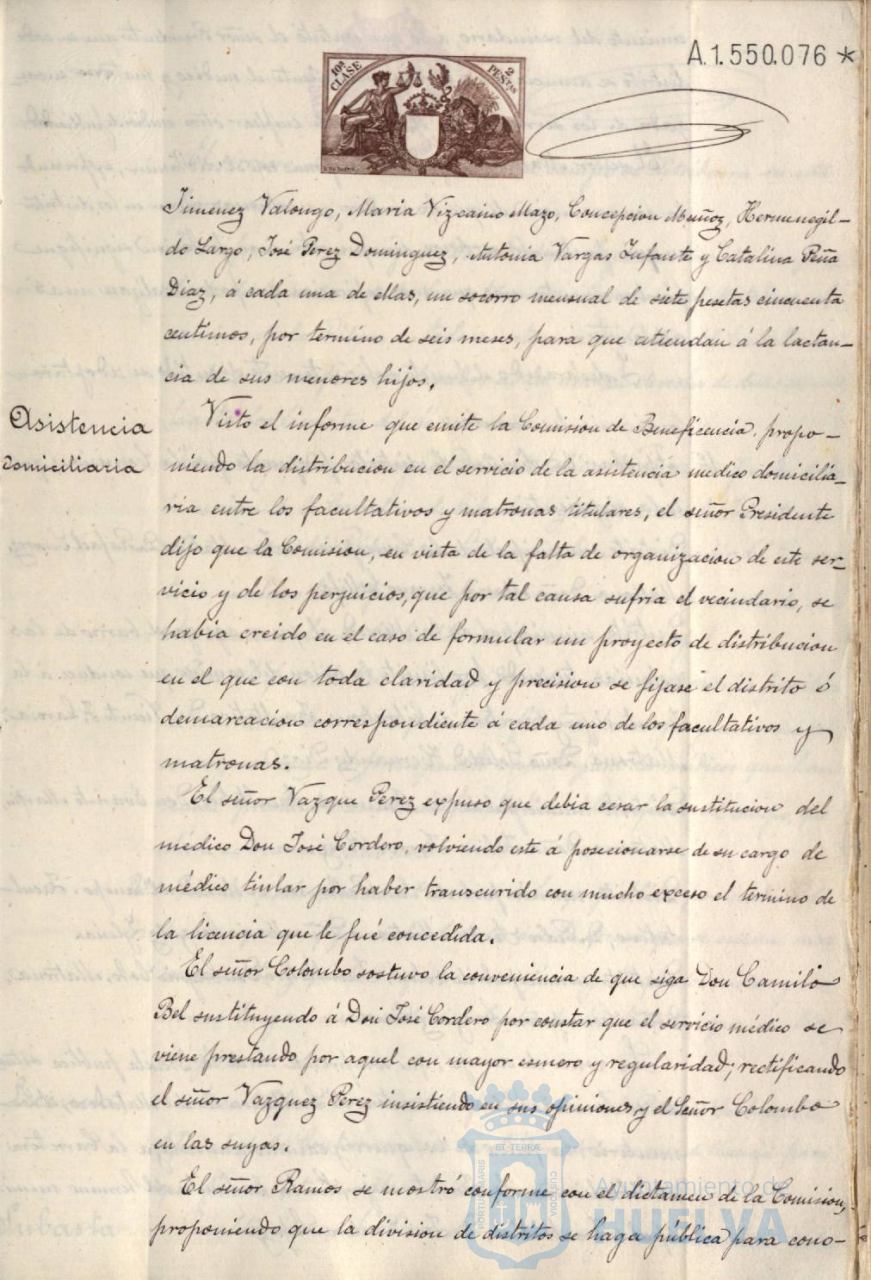 A.1.550.076 *
10ª CLASE
2 PESETAS
Jimenez Valongo, Maria Vizcaino Mazo, Concepcion Muñoz, Hermenegil-
do Largo, José Perez Dominguez, Antonia Vargas Infante y Catalina Peña
Diaz, á cada una de ellas, un socorro mensual de siete pesetas cincuenta
centimos, por termino de seis meses, para que atiendan á la lactan-
cia de sus menores hijos.
Asistencia
domiciliaria
Visto el informe que emite la Comision de Beneficencia, propo-
niendo la distribucion en el servicio de la asistencia medico domicilia-
ria entre los facultativos y matronas titulares, el señor Presidente
dijo que la Comision, en vista de la falta de organizacion de este ser-
vicio y de los perjuicios, que por tal causa sufria el vecindario, se
habia creido en el caso de formular un proyecto de distribucion
en el que con toda claridad y precision se fijase el distrito ó
demarcacion correspondiente á cada uno de los facultativos y
matronas.
El señor Vazque Perez expuso que debia cesar la sustitucion del
médico Don José Cordero, volviendo este á posecionarse de su cargo de
médico titular por haber transcurido con mucho exceso el termino de
la licencia que le fué concedida.
El señor Colombo sostuvo la conveniencia de que siga Don Camilo
Bel sustituyendo á Don José Cordero por constar que el servicio médico se
viene prestando por aquel con mayor esmero y regularidad; rectificando
el señor Vazquez Perez insistiendo en sus opiniones y el Señor Colombo
en las suyas.
El señor Ramos se mostró conforme con el dictamen de la Comision,
proponiendo que la division de distritos se haga pública para cono-
ET TERRÆ
PORTUS MARIS
CUSTODIA
Ayuntamiento de
HUELVA